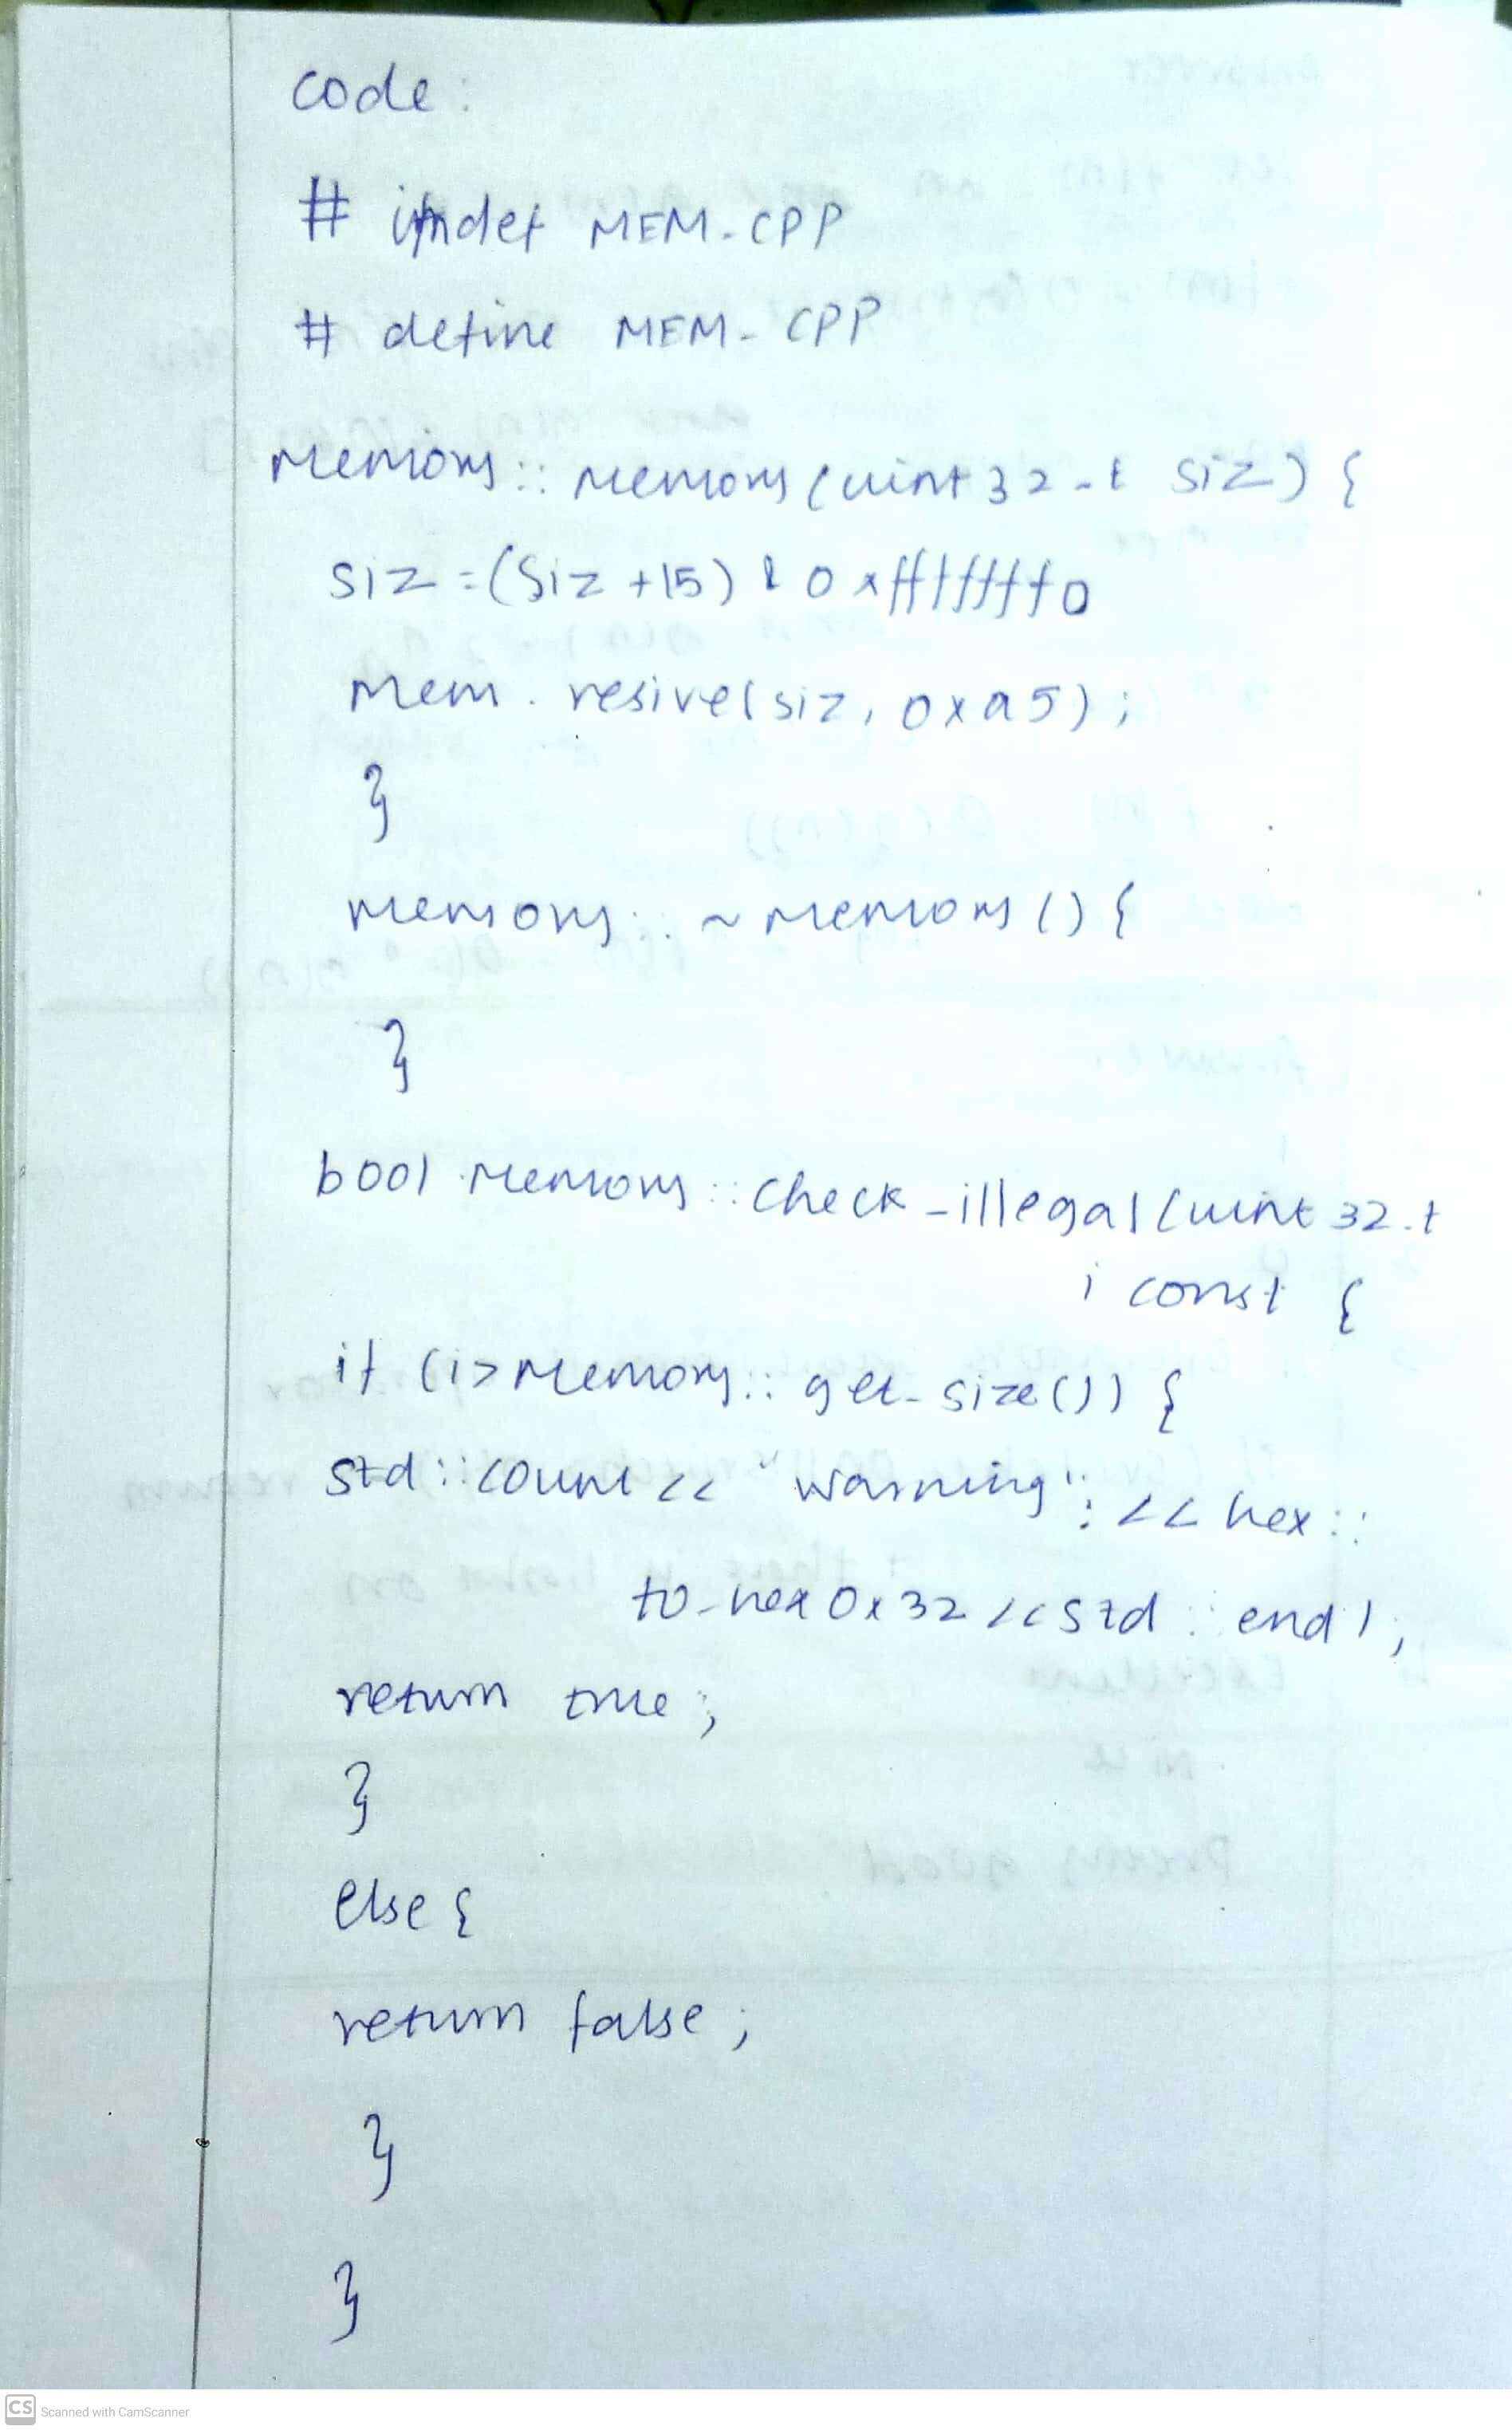 code:
# ifndef MEM-CPP
# define MEM-CPP
Memory :: Memory (uint 32-t siz) {
siz = (Siz +15) & 0xfffffff0
Mem. resive(siz, 0xa5);
}
memory :: ~ Memory () {
}
bool Memory :: Check-illegal (uint 32-t
i const {
if (i> Memory :: get-size()) {
std :: count << "warning": << hex ::
to-hex 0x32 << std :: endl;
return true;
}
else {
return false;
}
}
CS Scanned with CamScanner